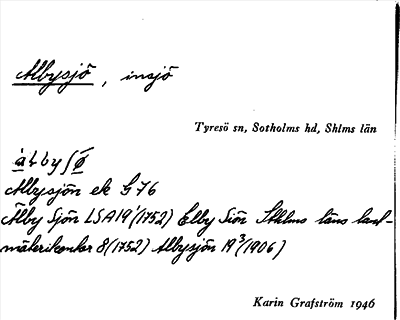 Albysjö, insjö
Tyresö sn, Sotholms hd, Shlms län
Albysjön ek G 76
Älby Sjön LSA19¹(1752) Elby Siön Sthlms läns lant-
mäterikontor 8(1752) Albysjön A9³(1906)
Karin Grafström 1946